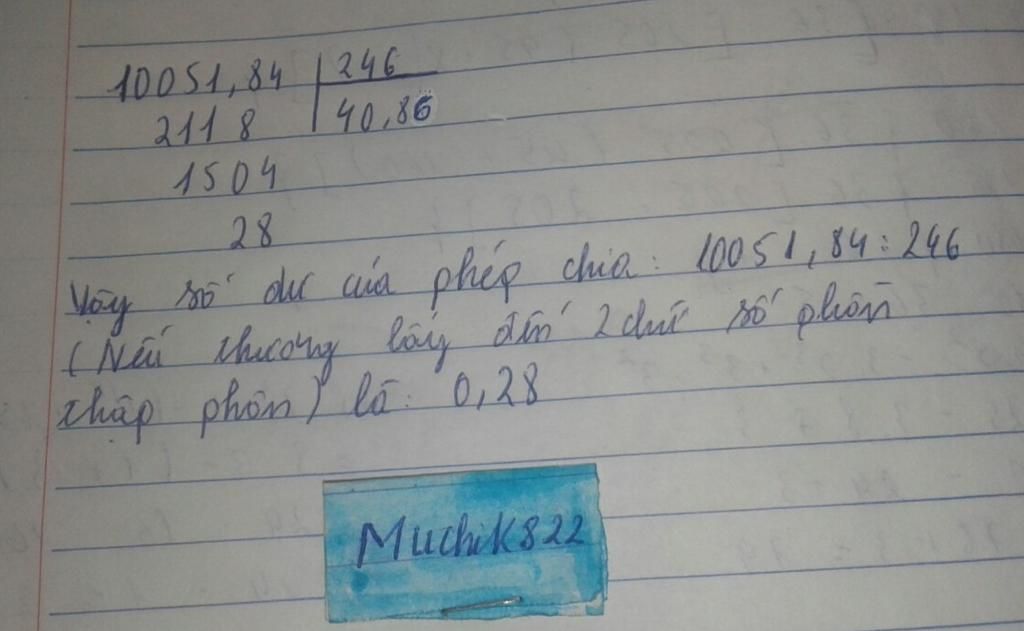 10051,84 246
2118 40,86
1504
28
Vậy số dư của phép chia: 10051,84:246
(Nếu thương lấy đến 2 chữ số phần
thập phân) là: 0,28
Muchik822